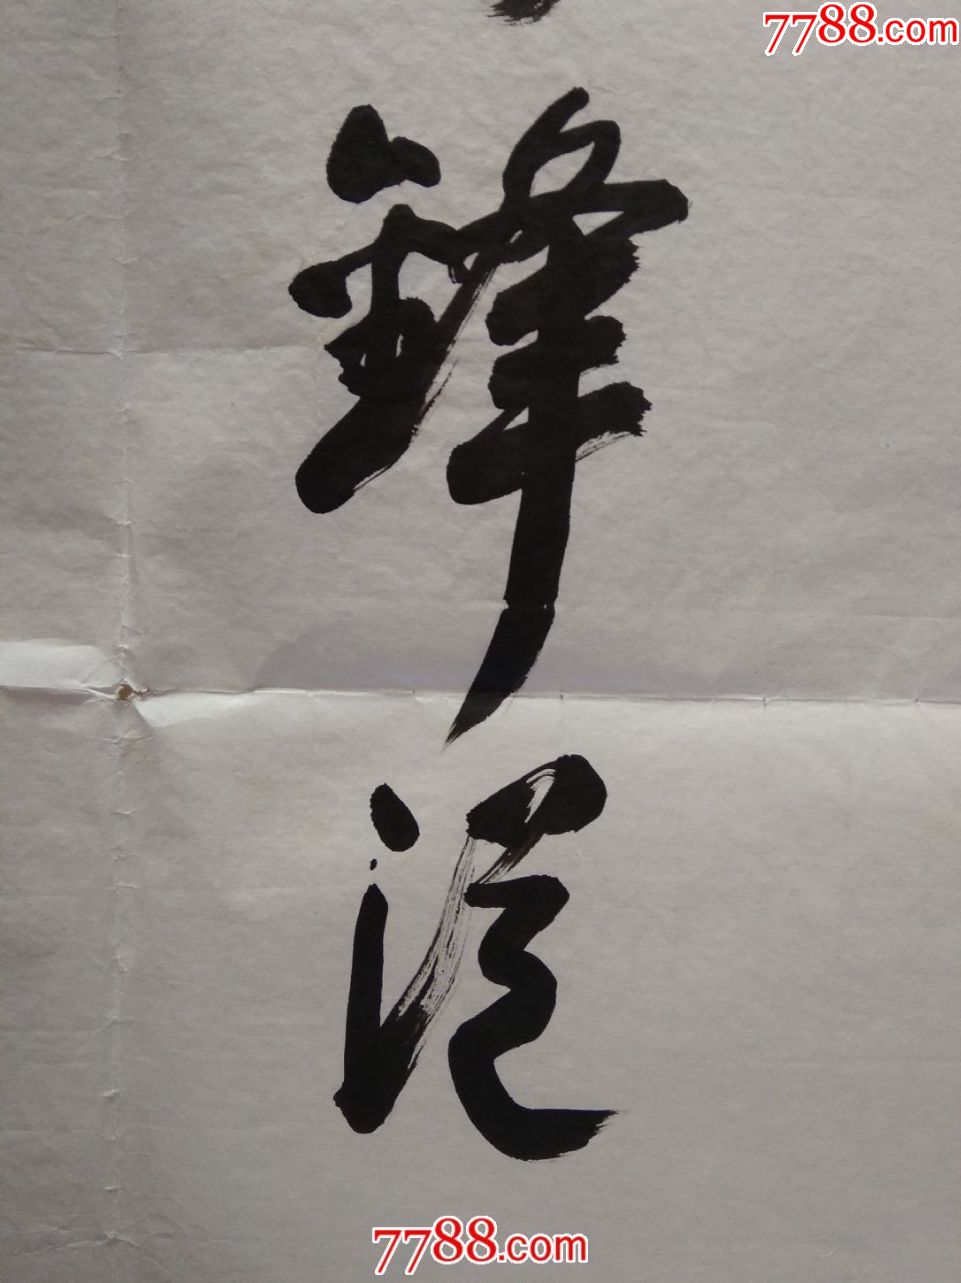 7788.com
鋒
從
7788.com